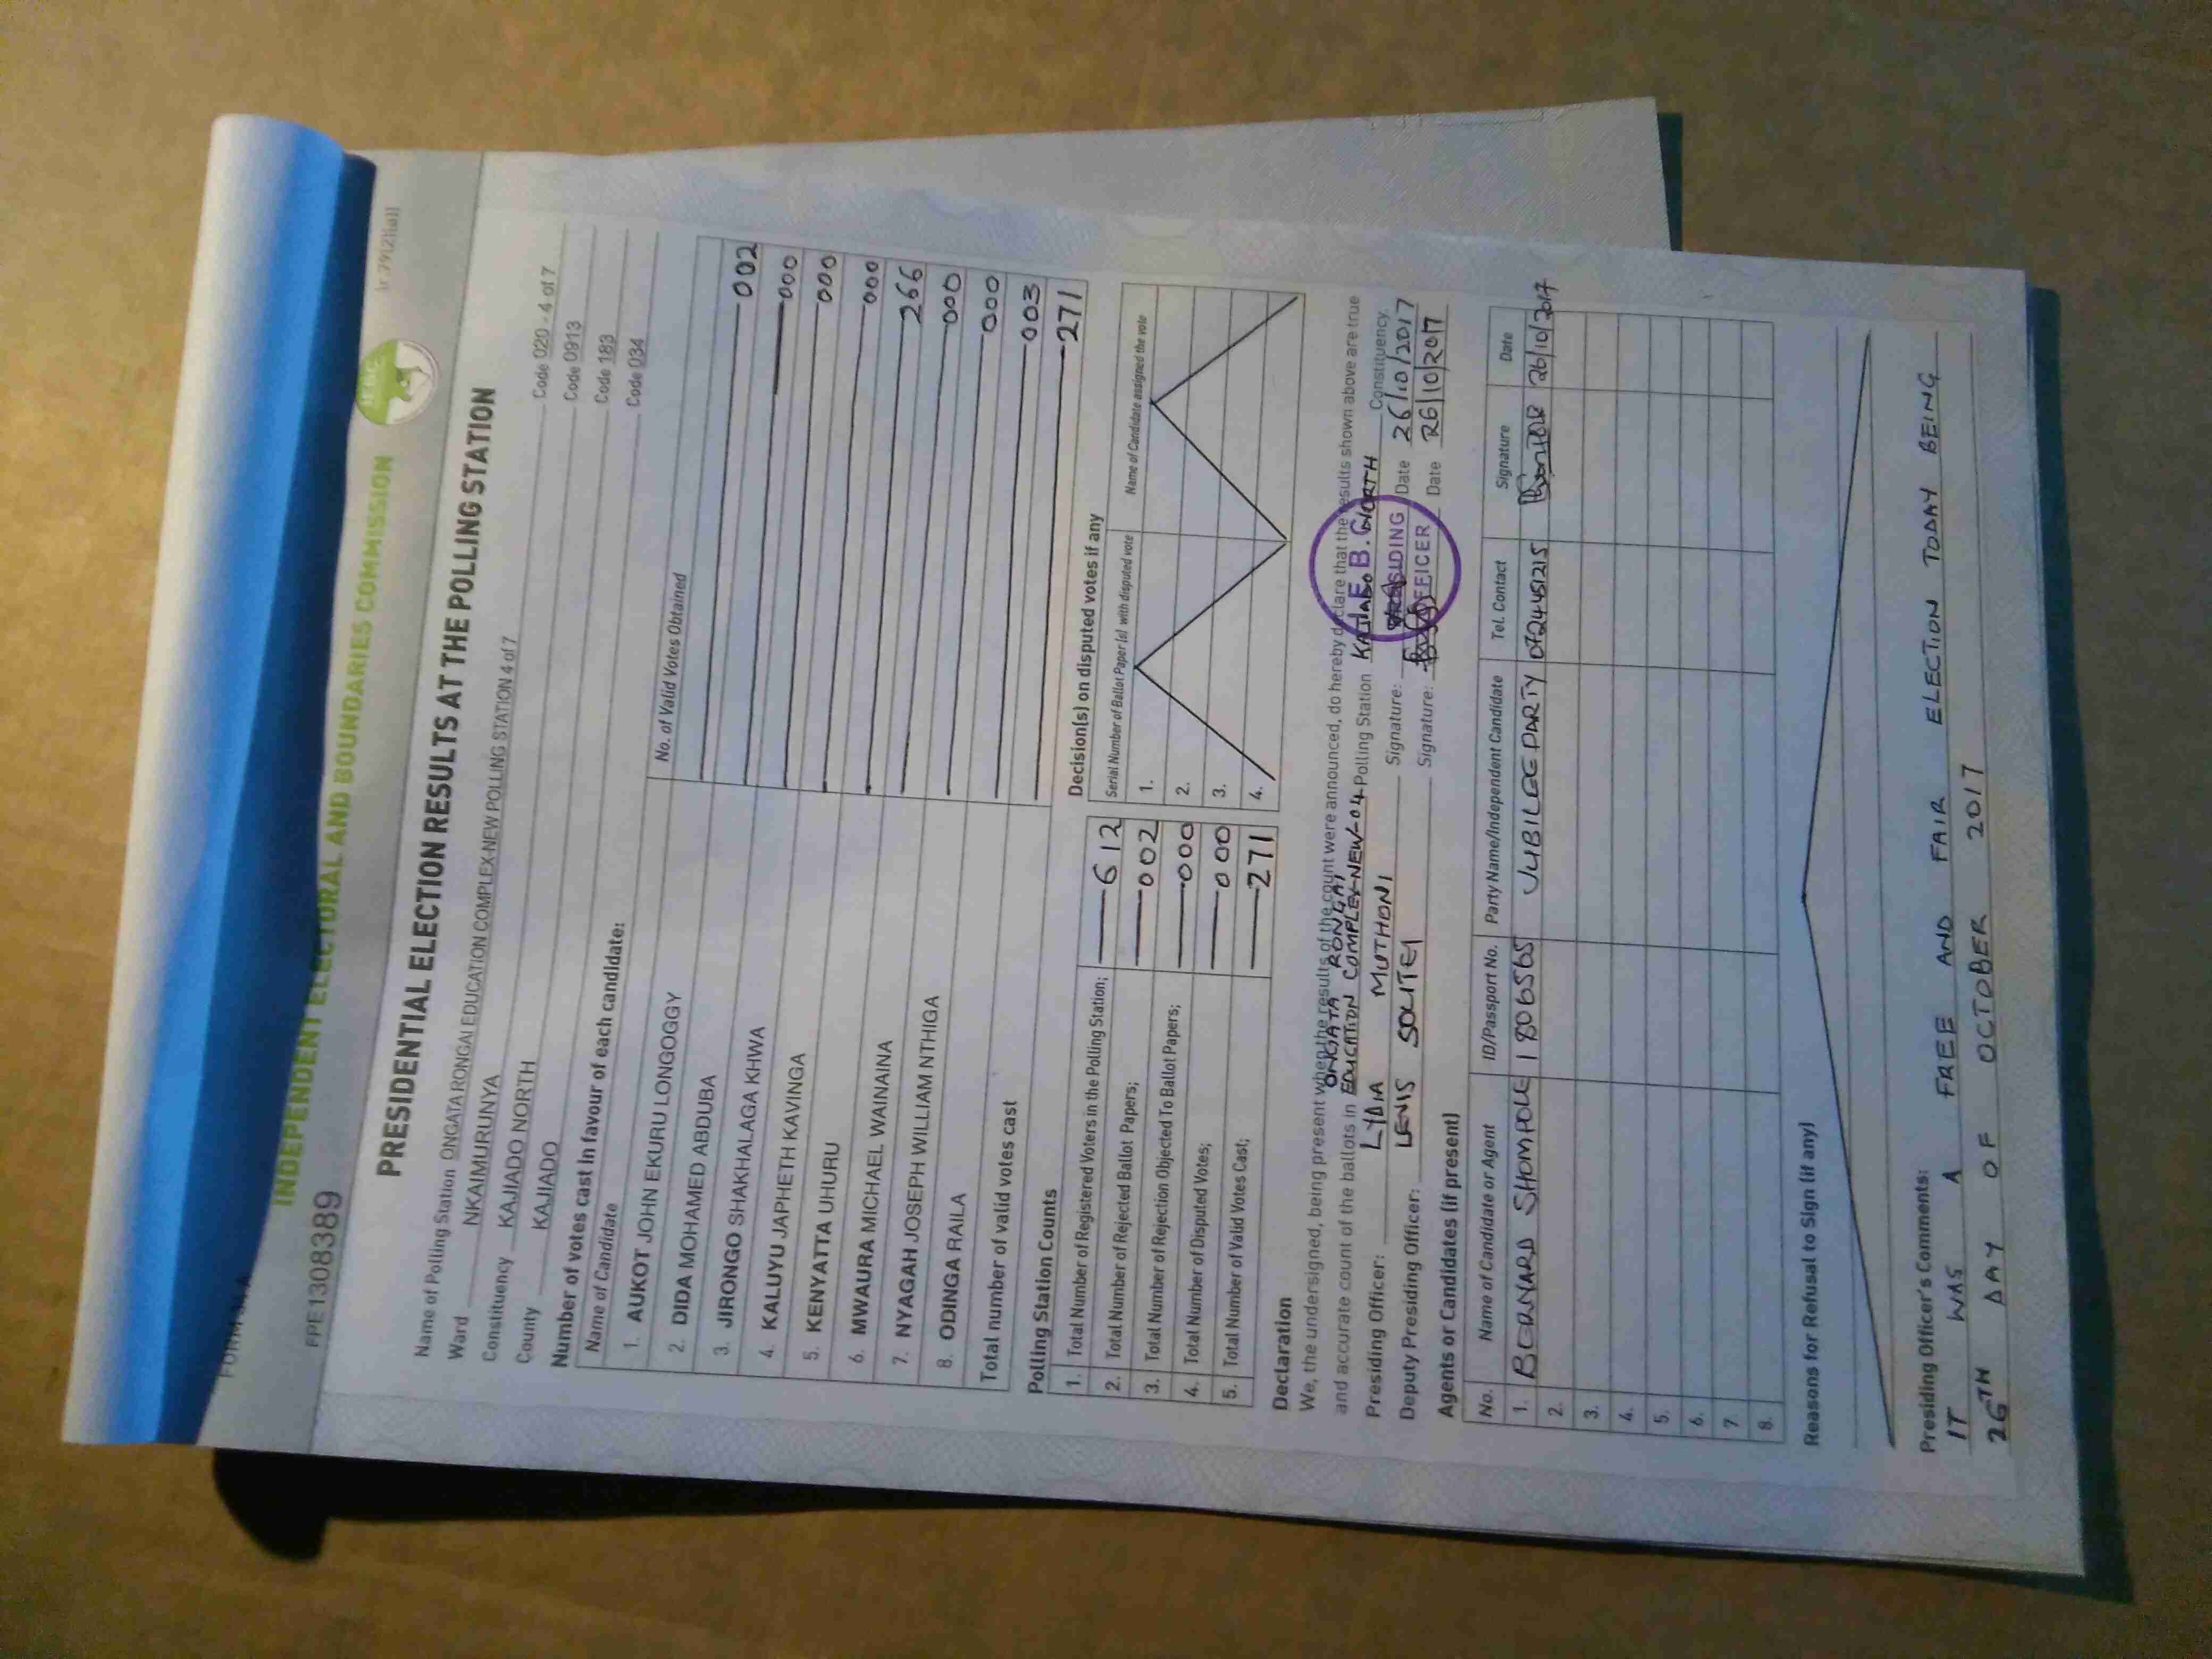 FORM 34A
INDEPENDENT ELECTORAL AND BOUNDARIES COMMISSION
FPE1308389
IEBC
PRESIDENTIAL ELECTION RESULTS AT THE POLLING STATION
Name of Polling Station ONGATA RONGAI EDUCATION COMPLEX-NEW POLLING STATION 4 of 7 Code 020 - 4 of 7
Ward NKAIMURUNYA Code 0913
Constituency KAJIADO NORTH Code 183
County KAJIADO Code 034
Number of votes cast in favour of each candidate:
Name of Candidate No. of Valid Votes Obtained
1. AUKOT JOHN EKURU LONGOGGY 002
2. DIDA MOHAMED ABDUBA 000
3. JIRONGO SHAKHALAGA KHWA 000
4. KALUYU JAPHETH KAVINGA 000
5. KENYATTA UHURU 266
6. MWAURA MICHAEL WAINAINA 000
7. NYAGAH JOSEPH WILLIAM NTHIGA 000
8. ODINGA RAILA 003
Total number of valid votes cast 271
Polling Station Counts
1. Total Number of Registered Voters in the Polling Station; 612
2. Total Number of Rejected Ballot Papers; 002
3. Total Number of Rejection Objected To Ballot Papers; 000
4. Total Number of Disputed Votes; 000
5. Total Number of Valid Votes Cast; 271
Decision(s) on disputed votes if any
Serial Number of Ballot Paper (s) with disputed vote Name of Candidate assigned the vote
1.
2.
3.
4.
Declaration
We, the undersigned, being present when the results of the count were announced, do hereby declare that the results shown above are true
ONGATA RONGAI
and accurate count of the ballots in EDUCATION COMPLEX-NEW-04 Polling Station KAJIADO NORTH Constituency.
Presiding Officer: LYDIA MUTHONI Signature: Date 26/10/2017
Deputy Presiding Officer: LEWIS SOLITEI Signature: Date 26/10/2017
I.E.B.C
PRESIDING
OFFICER
Agents or Candidates (if present)
No. Name of Candidate or Agent ID/Passport No. Party Name/Independent Candidate Tel. Contact Signature Date
1. BERNARD SHOMPOLE 1806565 JUBILEE PARTY 0724451215 26/10/2017
2.
3.
4.
5.
6.
7.
8.
Reasons for Refusal to Sign (if any)
Presiding Officer's Comments:
IT WAS A FREE AND FAIR ELECTION TODAY BEING
26TH DAY OF OCTOBER 2017